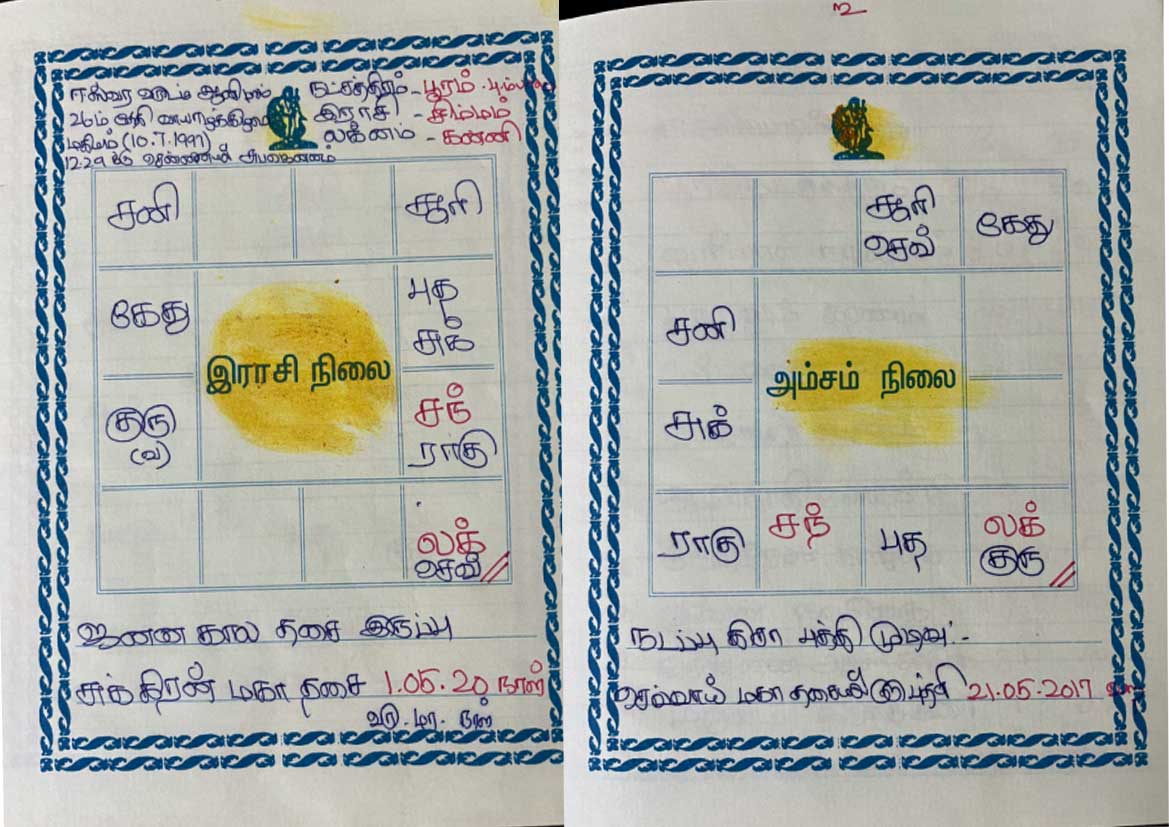 ஈஸ்வர வருடம் ஆனிமாதம்
26ம் தேதி வியாழக்கிழமை
மதியம் (10.7.1997)
12.29 க்கு சென்னையில் ஜனனம்
நட்சத்திரம் - பூரம் - 4ம்பாதம்
இராசி - சிம்மம்
லக்னம் - கன்னி
சனி
சூரி
கேது
புத
சுக்
இராசி நிலை
குரு
(வ)
சந்
ராகு
லக்
செவ்
ஜனன கால தசை இருப்பு
சுக்கிரன் மகா தசை 1.05.20 நாள்
வரு. மா. நாள்
2
சூரி
செவ்
கேது
சனி
அம்சம் நிலை
சுக்
ராகு
சந்
புத
லக்
குரு
நடப்பு திசா புத்தி முடிவு :-
செவ்வாய் மகா தசையில் குரு புத்தி 21.05.2017